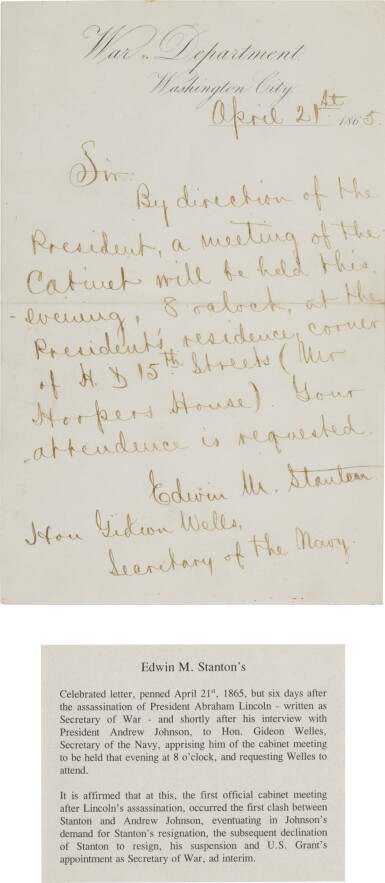 War Department
Washington City,
April 21st 1865.
Sir:
By direction of the
President, a meeting of the
Cabinet will be held this
evening, 8 oclock, at the
President's, residence, corner
of H. & 15th Streets (Mr
Hoopers House). Your
attendence is requested.
Edwin M. Stanton
Hon Gideon Wells,
Secretary of the Navy.
Edwin M. Stanton's
Celebrated letter, penned April 21st, 1865, but six days after
the assassination of President Abraham Lincoln - written as
Secretary of War - and shortly after his interview with
President Andrew Johnson, to Hon. Gideon Welles,
Secretary of the Navy, apprising him of the cabinet meeting
to be held that evening at 8 o'clock, and requesting Welles to
attend.
It is affirmed that at this, the first official cabinet meeting
after Lincoln's assassination, occurred the first clash between
Stanton and Andrew Johnson, eventuating in Johnson's
demand for Stanton's resignation, the subsequent declination
of Stanton to resign, his suspension and U.S. Grant's
appointment as Secretary of War, ad interim.